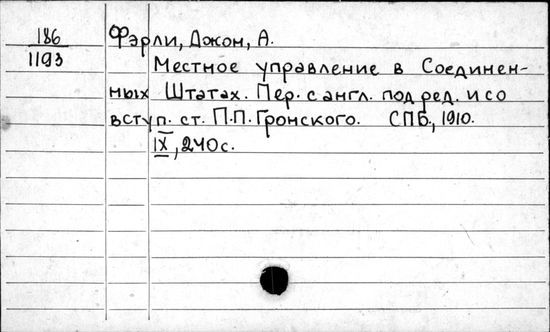 186 Фэрли, Джон, А.
1193
Местное управление в Соединен-
ных Штатах. Пер. с англ. под ред. и со
вступ. ст. П.П. Гронского. СПБ., 1910.
IX, 240 с.